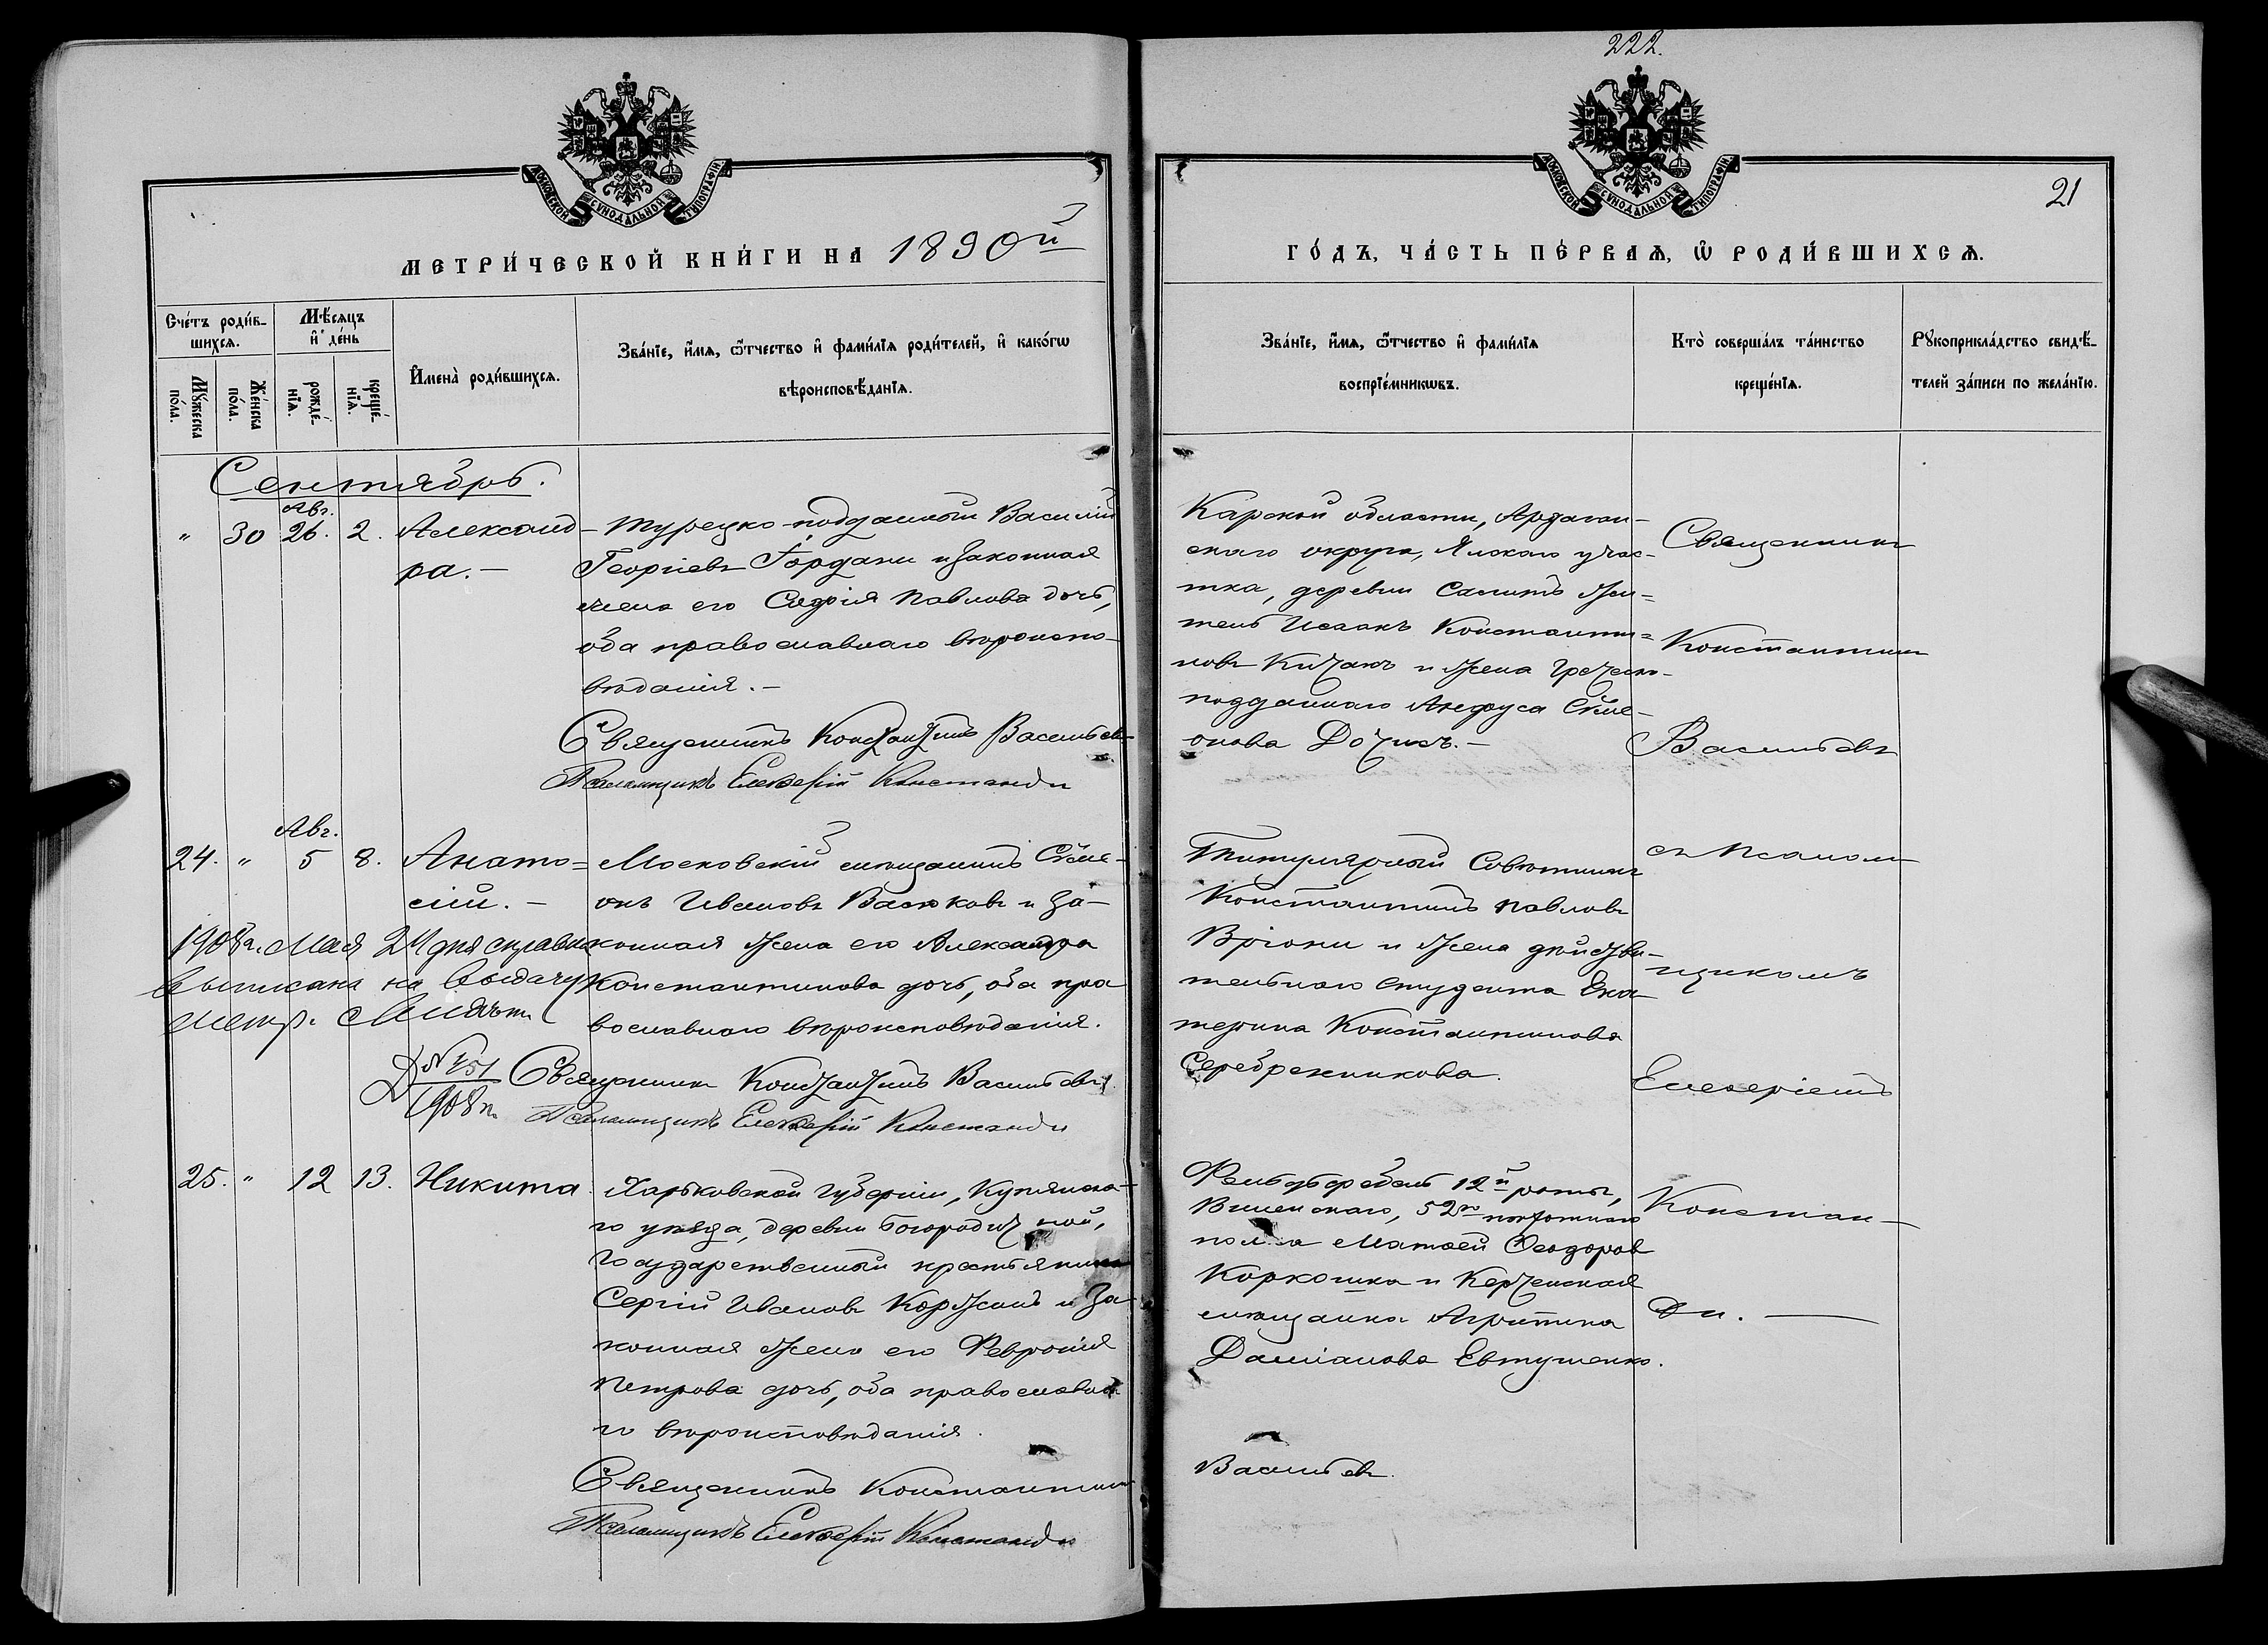 222.
21
МОСКОВСКОЙ СѴНОДАЛЬНОЙ ТѴПОГРАФІИ
МОСКОВСКОЙ СѴНОДАЛЬНОЙ ТѴПОГРАФІИ
МЕТРИ́ЧЕСКОЙ КНИ́ГИ НА 1890й
ГО́ДЪ, ЧА́СТЬ ПЕ́РВАѦ, Ѡ҃ РОДИ́ВШИХСѦ.
Сче́тъ роди́в-
шихсѧ.
Мꙋ́жеска по́ла.
Же́нска по́ла.
Мѣ́сѧцъ
и҆ де́нь
рожде́-нїѧ.
креще́-нїѧ.
И҆мена̀ роди́вшихсѧ.
Зва́нїе, и҆́мѧ, ѻ҆́тчество и҆ фами́лїѧ роди́телей, и҆ како́гѡ
вѣроисповѣ́данїѧ.
Зва́нїе, и҆́мѧ, ѻ҆́тчество и҆ фами́лїѧ
воспрїе́мникѡвъ.
Кто̀ соверша́лъ та́инство
креще́нїѧ.
Рꙋкоприкла́дство свидѣ́-
телей за́писи по жела́нїю.
Сентябрь.
Авг.
" 30 26. 2. Александ-
ра. —
Турецко-подданный Василій
Георгіевъ Іордани и законная
жена его Софія Павлова дочь,
оба православнаго вѣроиспо-
вѣданія. —
Священникъ Константинъ Васильевъ
Псаломщикъ Елевферій Константи
Карской области, Ардаган-
скаго округа, участ-
тка, деревни жи-
тель Исаакъ Константи-
новъ Кичакъ и жена Греческо-
подданнаго Симе-
онова
Священникъ
Константинъ
Васильевъ
Авг.
24. " 5 8. Анато-
лій. —
Московскій мѣщанинъ Симе-
онъ Ивановъ Васюковъ и за-
конная жена его Александра
Константинова дочь, оба пра
вославнаго вѣроисповѣданія.
1908 г. Мая 24 дня справка
выписана на выдачу
метр.
Д №151
1908 г.
Священникъ Константинъ Васильевъ
Псаломщикъ Елевферій Константи
Титулярный Совѣтникъ
Константинъ Павловъ
Вріони и жена дѣйстви-
тельнаго студента Ека
терина Константинова
Серебренникова.
съ Псалом-
щикомъ
Елевѳеріемъ
25. " 12 13. Никита.
Харьковской губерніи, Купянска-
го уѣзда, деревни Богородичной,
государственный крестьянинъ
Сергій Ивановъ Коржинъ и за
конная жена его Февронія
Петрова дочь, оба православна
го вѣроисповѣданія.
Священникъ Константинъ
Псаломщикъ Елевферій Константи
Фельдфебель 12й роты,
Виленскаго, 52го пѣхотнаго
полка Матѳей Ѳеодоровъ
Коркошка и Керченская
мѣщанка Агрипина
Даміанова Евтушенко.
Васильевъ.
Констан-
ди. —